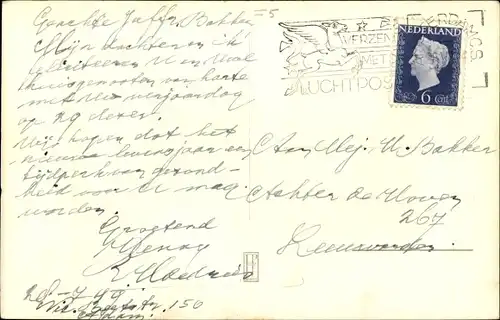 Geachte Juffr. Bakker
Mijn dochter en ik
feliciteren U en Uwe
huisgenooten van harte
met Uw verjaardag
op 29 dezer.
Wij hopen dat het
nieuwe levensjaar een
tijdperk van gezond-
heid voor U mag
worden.
Groetend
156
=5
VERZEN
MET
LUCHTPOS
NEDERLAND
6 cent
Aan Mej. U. Bakker
Achter de Hoven
267
Leeuwarden.